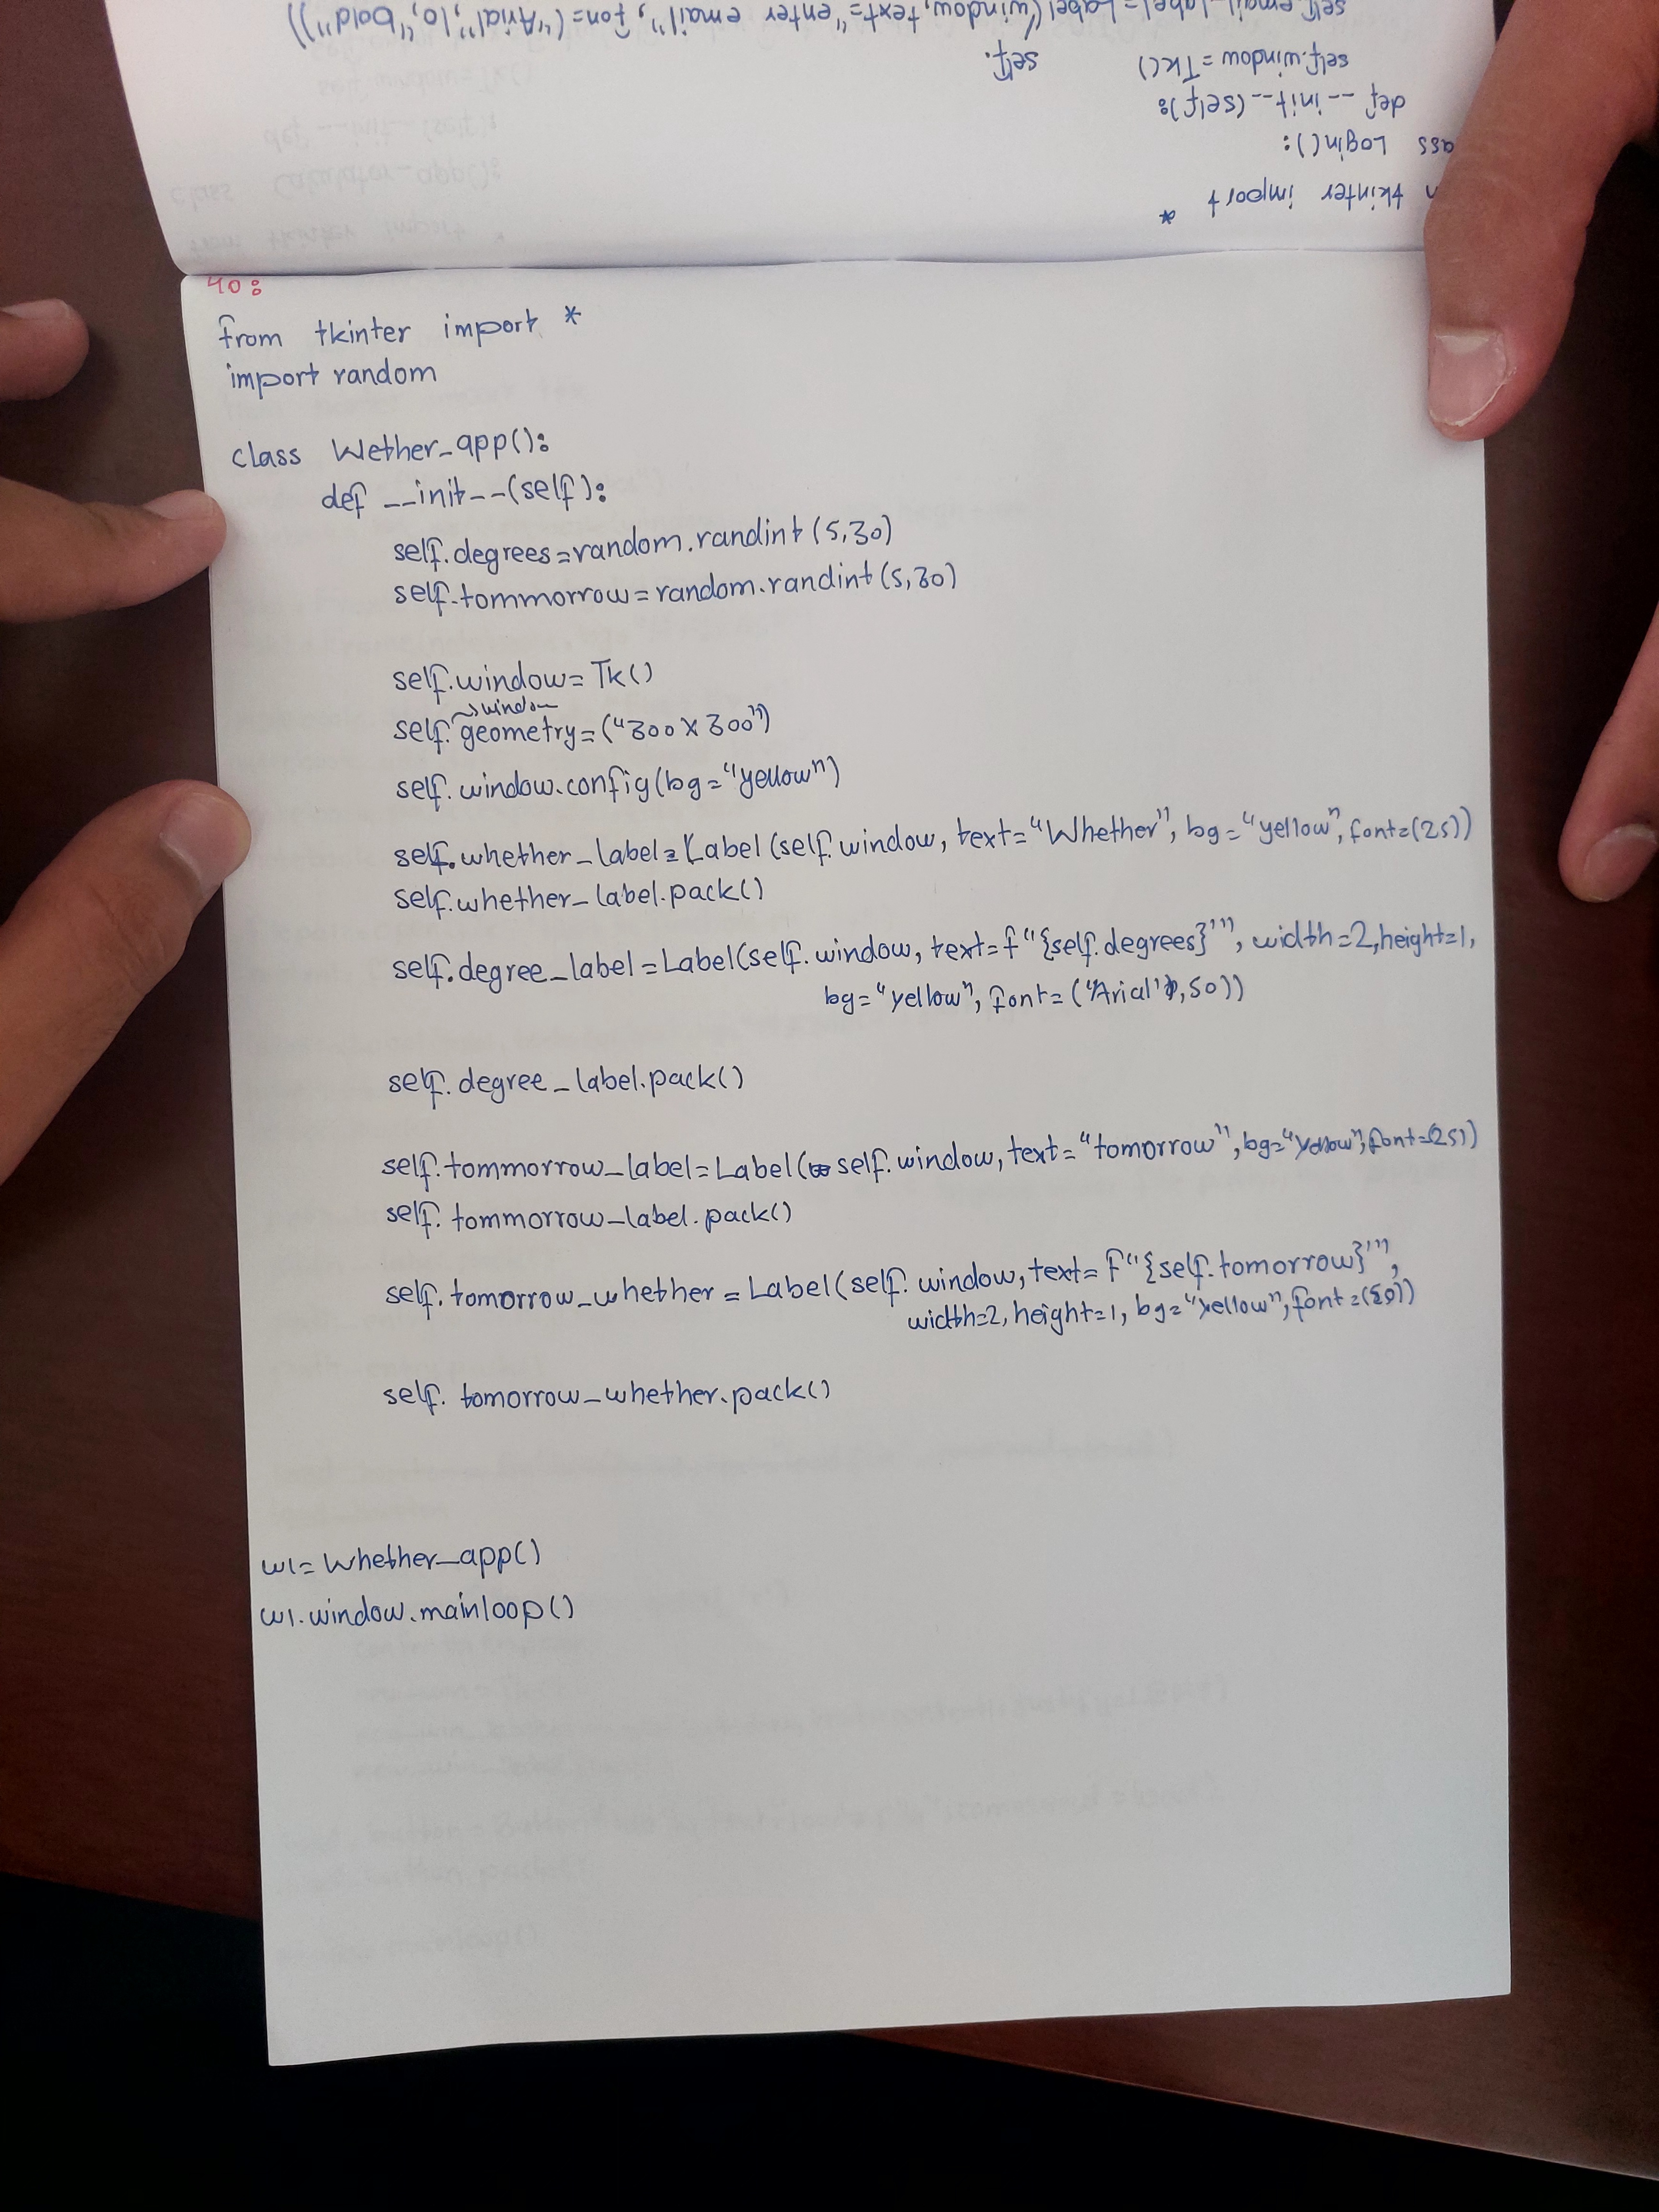 self.email_label=Label(window,text="enter email", fon=("Arial",10,"bold"))
self.window=Tk()
self.
def __init__(self):
ass Login():
tkinter import *
40:
from tkinter import *
import random
class Wether_app():
def __init__(self):
self.degrees=random.randint(5,30)
self.tommorrow=random.randint(5,30)
self.window=Tk()
window
self.geometry=("300x300")
self.window.config(bg="yellow")
self.whether_label=Label(self.window, text="Whether", bg="yellow", font=(25))
self.whether_label.pack()
self.degree_label=Label(self.window, text=f"{self.degrees}'", width=2,height=1,
bg="yellow", font=("Arial",50))
self.degree_label.pack()
self.tommorrow_label=Label(self.window,text="tomorrow",bg="yellow",font=(25))
self.tommorrow_label.pack()
self.tomorrow_whether=Label(self.window,text=f"{self.tomorrow}'",
width=2, height=1, bg="yellow",font=(50))
self.tomorrow_whether.pack()
w1=Whether_app()
w1.window.mainloop()